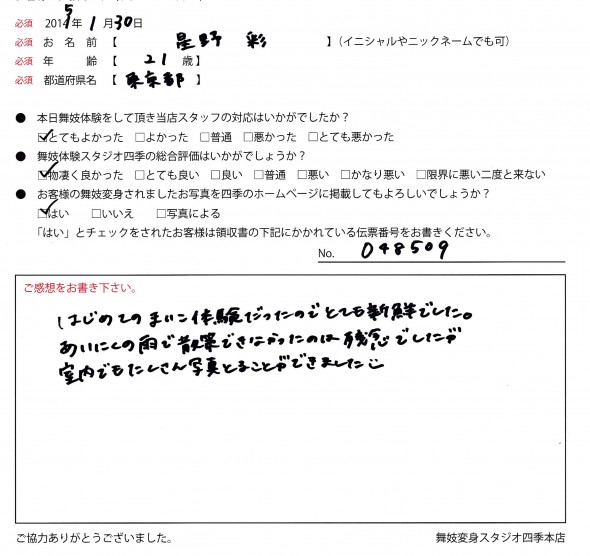 必須 2015年 1月30日
必須 お名前【 星野 彩 】(イニシャルやニックネームでも可)
必須 年 齢【 21 歳】
必須 都道府県名【 東京都 】
● 本日舞妓体験をして頂き当店スタッフの対応はいかがでしたか?
☑とてもよかった □よかった □普通 □悪かった □とても悪かった
● 舞妓体験スタジオ四季の総合評価はいかがでしょうか?
☑物凄く良かった □とても良い □良い □普通 □悪い □かなり悪い □限界に悪い二度と来ない
● お客様の舞妓変身されましたお写真を四季のホームページに掲載してもよろしいでしょうか?
☑はい □いいえ □写真による
「はい」とチェックをされたお客様は領収書の下記にかかれている伝票番号をお書きください。
No. 048509
ご感想をお書き下さい。
はじめてのまいこ体験だったのでとても新鮮でした。
あいにくの雨で散策できなかったのは残念でしたが
室内でもたくさん写真とることができました
ご協力ありがとうございました。 舞妓変身スタジオ四季本店